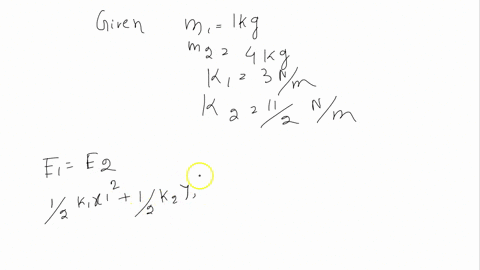 Given m₁ = 1kg
m₂ = 4kg
K₁ = 3 N/m
K₂ = 11/2 N/m
E₁ = E₂
1/2 K₁x₁² + 1/2 K₂